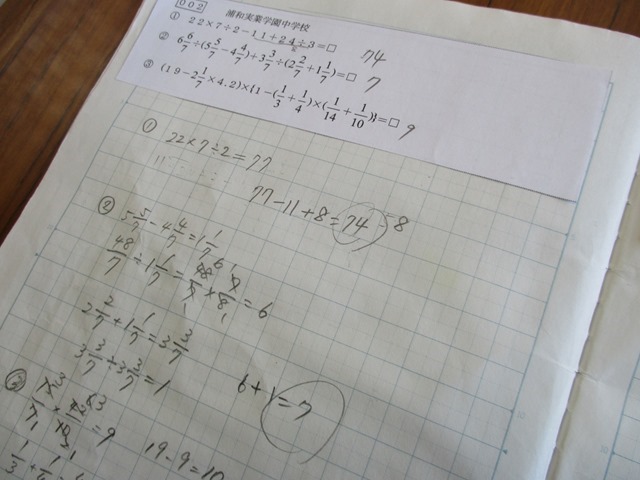 002
浦和実業学園中学校
① 22×7÷2-11+24÷3=□ 74
② 6 6/7÷(5 5/7-4 4/7)+3 3/7÷(2 2/7+1 1/7)=□ 7
③ (19-2 1/7×4.2)×{1-(1/3+1/4)×(1/14+1/10)}=□ 9
① 22×7÷2=77
77-11+8=74
8
② 5 5/7-4 4/7=1 1/7
48/7÷1 1/7=48/7×7/8=6
2 2/7+1 1/7=3 3/7
3 3/7÷3 3/7=1
6+1=7
③
=9
19-9=10
1/3+1/4